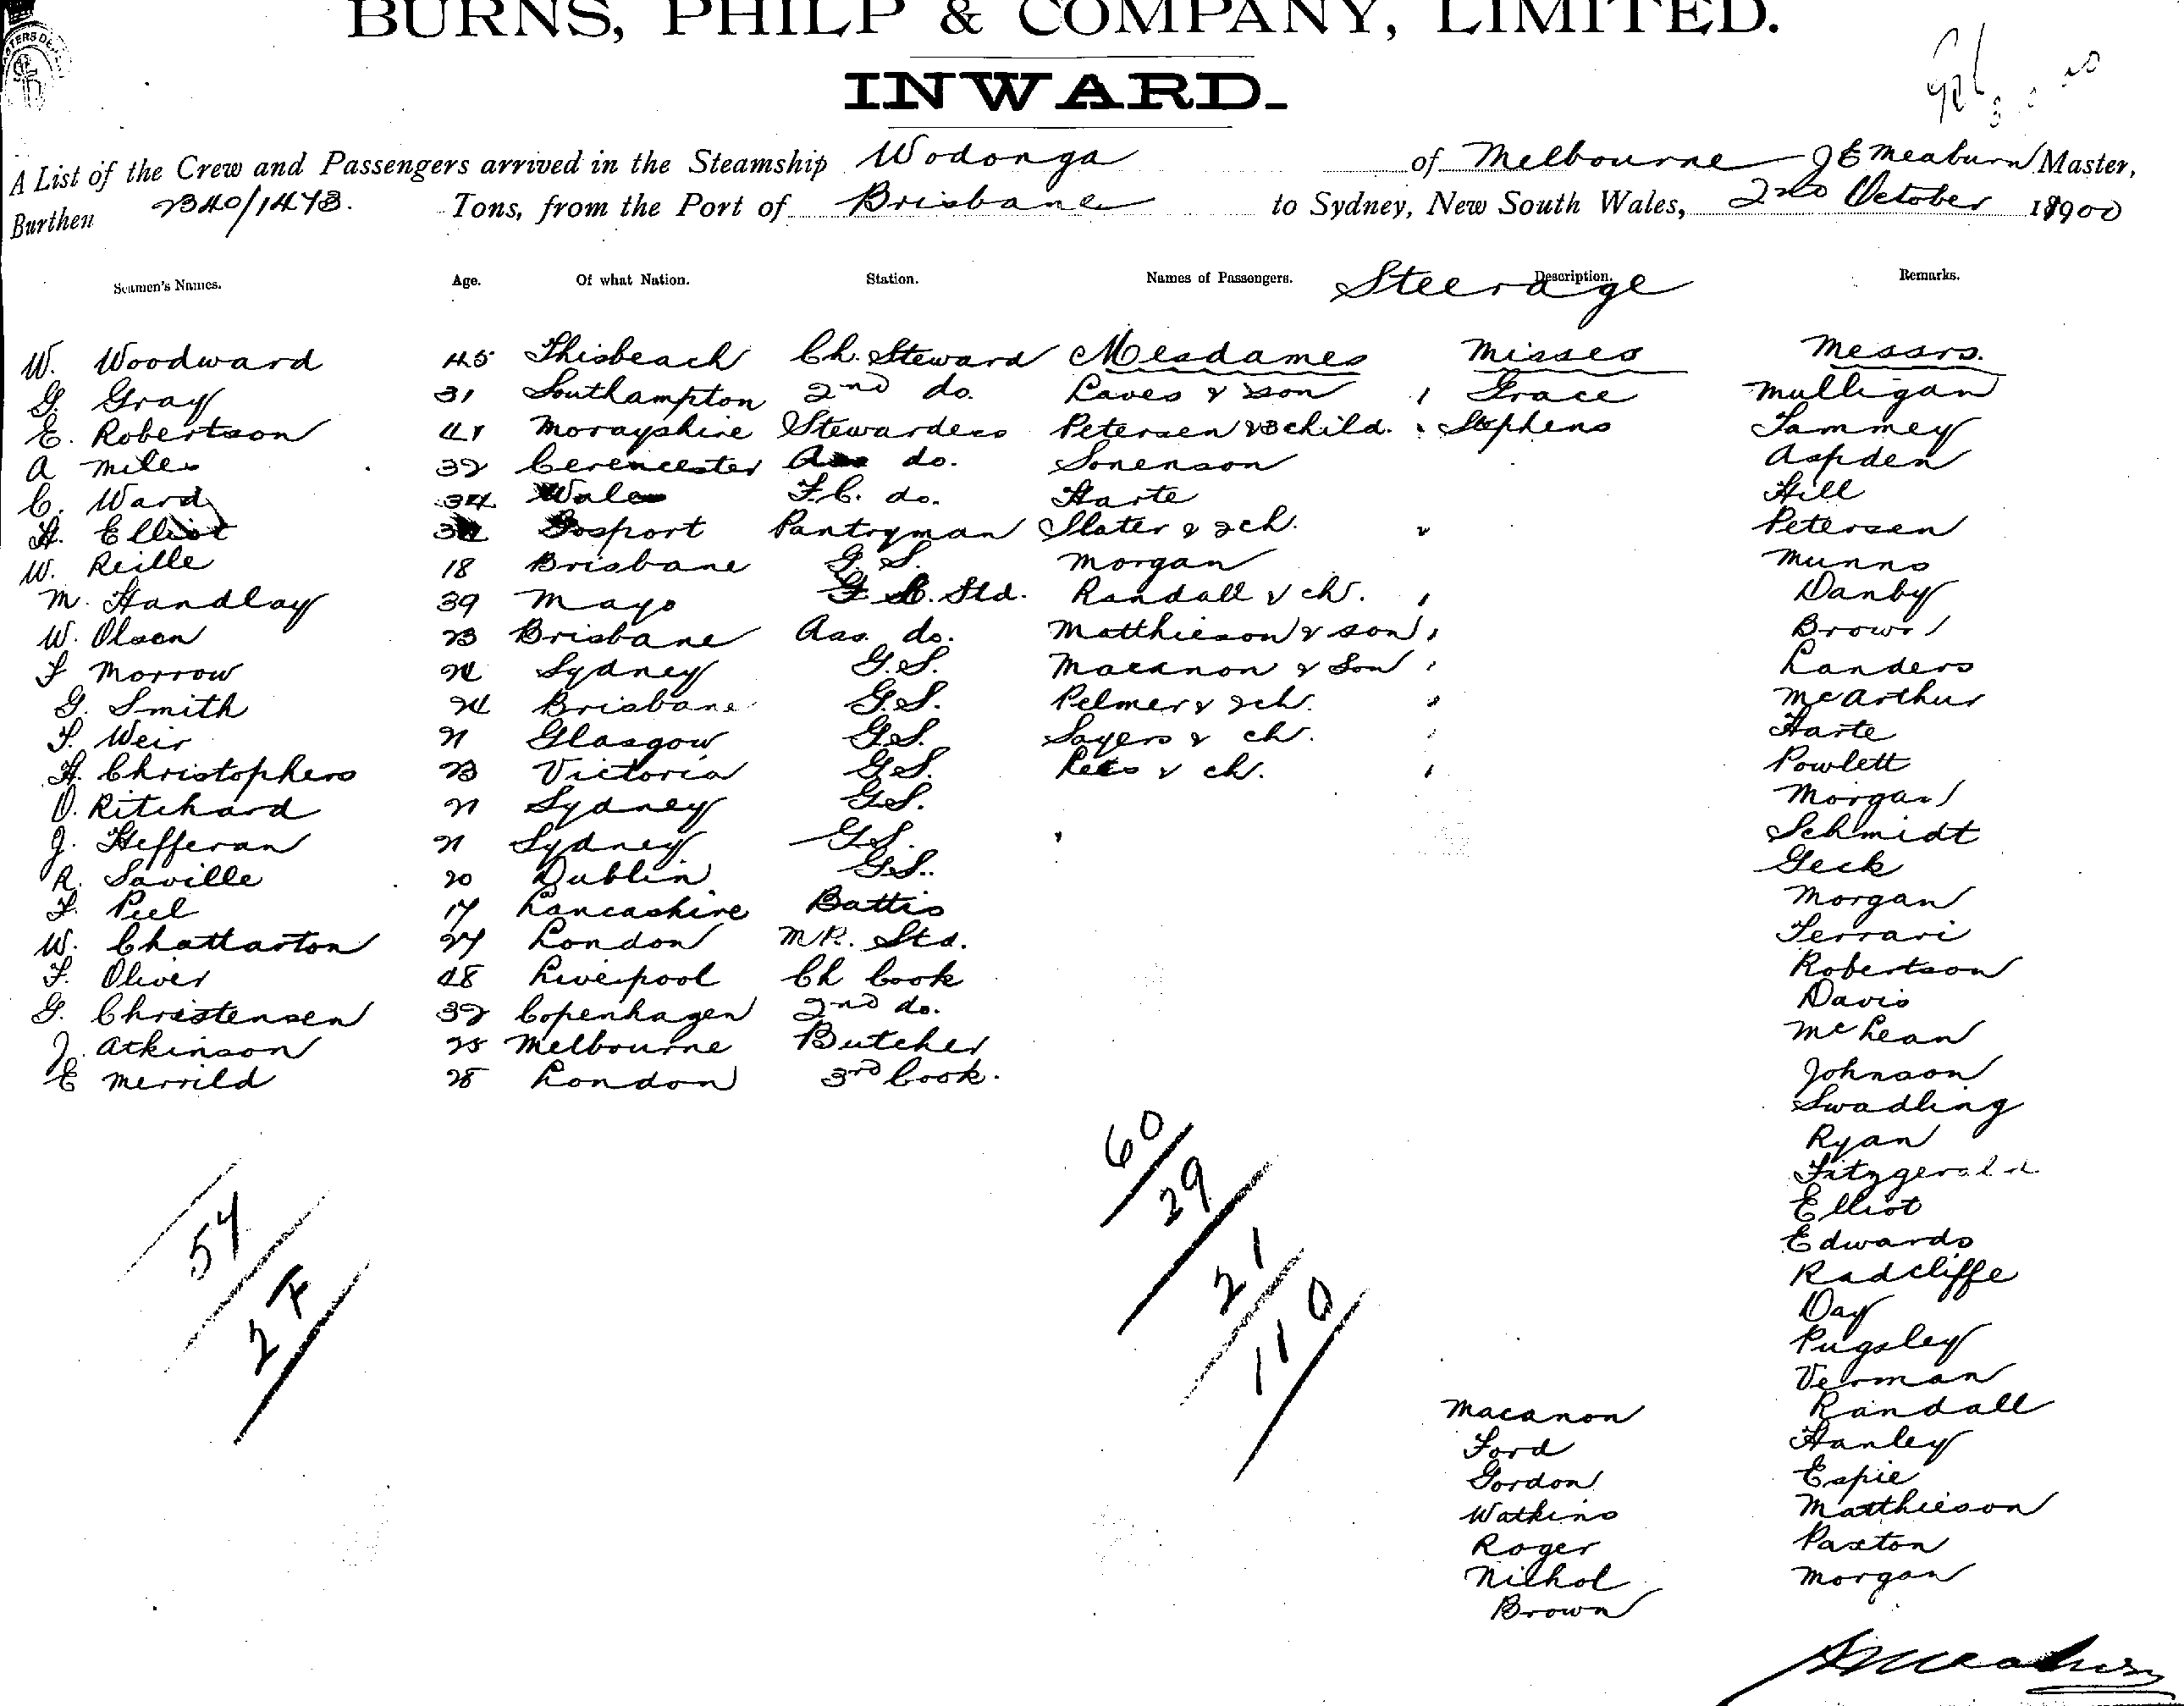 BURNS, PHILP & COMPANY, LIMITED.
INWARD.
A List of the Crew and Passengers arrived in the Steamship Wodonga of Melbourne J E Meaburn Master,
Burthen 2340/1473. Tons, from the Port of Brisbane to Sydney, New South Wales, 2nd October 1900
Seamen's Names. Age. Of what Nation. Station. Names of Passengers. Description. Remarks.
Steerage
W. Woodward 45 Thisbeach Ch. Steward Mesdames Misses Messrs.
G. Gray 31 Southampton 2nd do. Eaves & Son 1 Grace Mulligan
E. Robertson 41 Morayshire Stewardess Petersen & 3 child. Stephens Tammey
A Miles 32 Cerencester Ass do. Sonenson Aspden
C. Ward 34 Wales F.C. do. Harte Hill
H. Elliot Gosport Pantryman Slater & 2 ch. Petersen
W. Reille 18 Brisbane G. S. Morgan Munns
M. Handlay 39 Mayo Std. Randall & ch. Danby
W. Olsen 23 Brisbane Ass. do. Matthieson & son Brown
F Morrow 24 Sydney G.S. Macanon & Son Landers
G. Smith 24 Brisbane G.S. Pelmer & 2 ch. McArthur
F. Weir 21 Glasgow G.S. Sayers & ch. Harte
H. Christophers 23 Victoria G.S. Rees & ch. Powlett
O. Ritchard 21 Sydney G.S. Morgan
J. Hefferan 21 Sydney G.S. Schmidt
R. Saville 20 Dublin G.S. Geck
F. Peel 17 Lancashire Battis Morgan
W. Chattarton 27 London M.R. Std. Ferrari
F. Oliver 48 Liverpool Ch Cook Robertson
G. Christensen 32 Copenhagen 2nd do. Davis
J. Atkinson 25 Melbourne Butcher McLean
E Merrild 28 London 3rd Cook. Johnson
Swadling
Ryan
Fitzgerald
Elliot
Edwards
Radcliffe
Day
Pugsley
Verman
Macanon Randall
Ford Hanley
Gordon Espie
Watkins Matthieson
Roger Paxton
Nichol Morgan
Brown
60
29
21
110
57